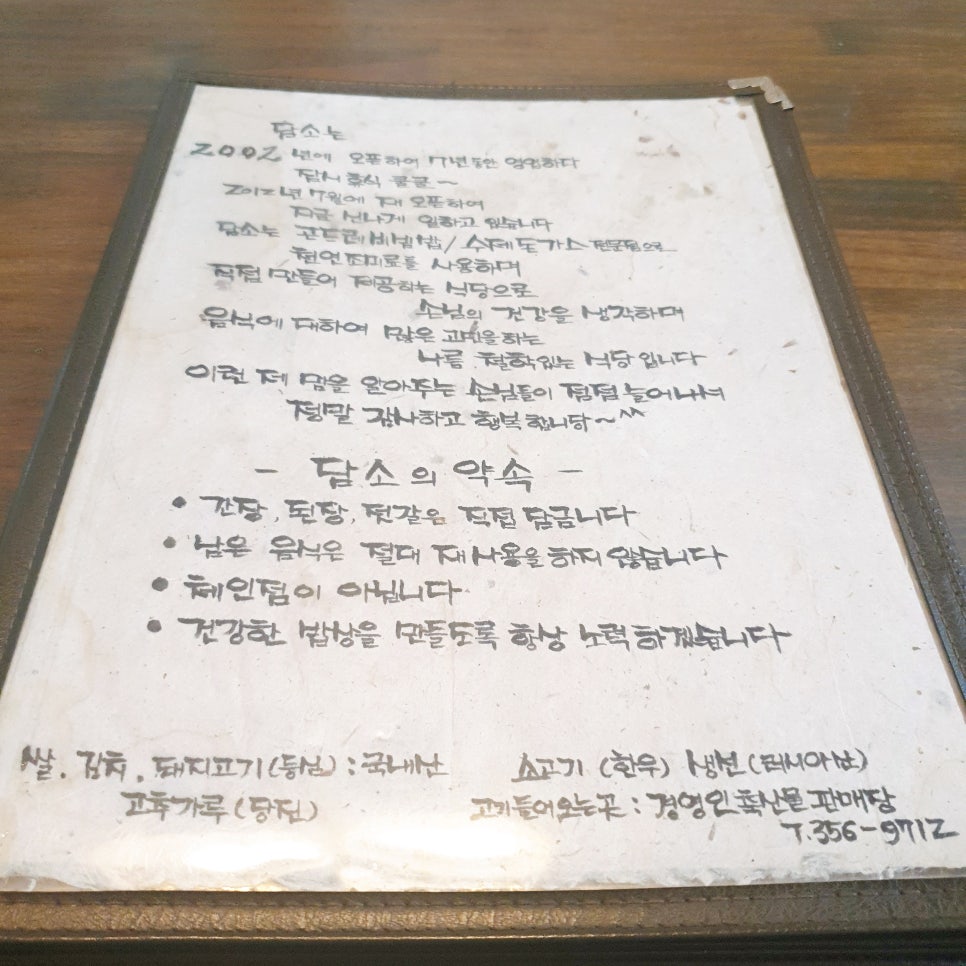 담소는
2002년에 오픈하여 7년동안 영업하다
잠시 휴식 쿨쿨~
2012년 7월에 재 오픈하여
지금 신나게 일하고 있습니다
담소는 곤드레비빔밥/수제돈가스 전문점으로
천연조미료를 사용하며
직접 만들어 제공하는 식당으로
손님의 건강을 생각하며
음식에 대하여 많은 고민을하는
나름 철학있는 식당입니다
이런 제 맘을 알아주는 손님들이 점점 늘어나서
정말 감사하고 행복합니다~^^
- 담소의 약속 -
• 간장, 된장, 젓갈은 직접 담급니다
• 남은 음식은 절대 재사용을 하지 않습니다
• 체인점이 아닙니다
• 건강한 밥상을 만들도록 항상 노력하겠습니다
쌀. 김치. 돼지고기(등심) : 국내산 소고기 (한우) 생선(러시아산)
고추가루(당진) 고기들어오는곳 : 경영인축산물판매장
T.356-9712